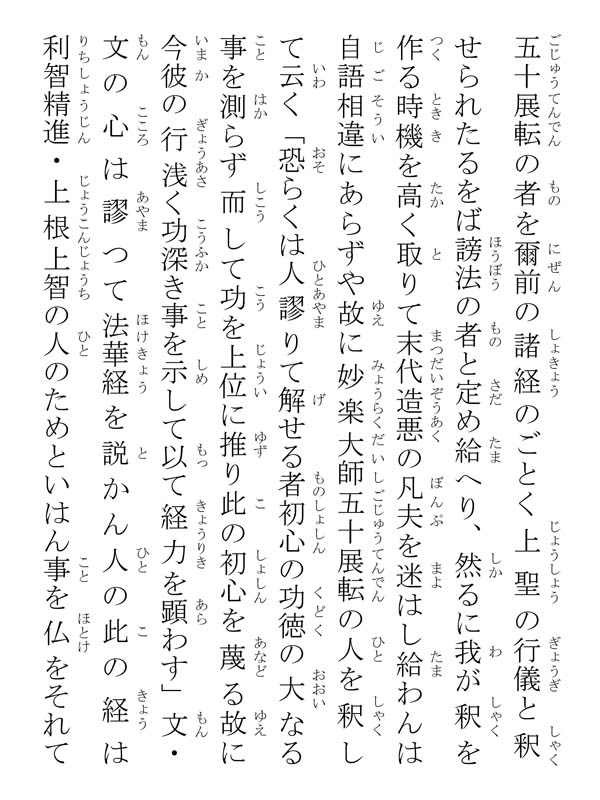 五十展転の者を爾前の諸経のごとく上聖の行儀と釈
せられたるをば謗法の者と定め給へり、然るに我が釈を
作る時機を高く取りて末代造悪の凡夫を迷はし給わんは
自語相違にあらずや故に妙楽大師五十展転の人を釈し
て云く「恐らくは人謬りて解せる者初心の功徳の大なる
事を測らず而して功を上位に推り此の初心を蔑る故に
今彼の行浅く功深き事を示して以て経力を顕わす」文・
文の心は謬つて法華経を説かん人の此の経は
利智精進・上根上智の人のためといはん事を仏をそれて